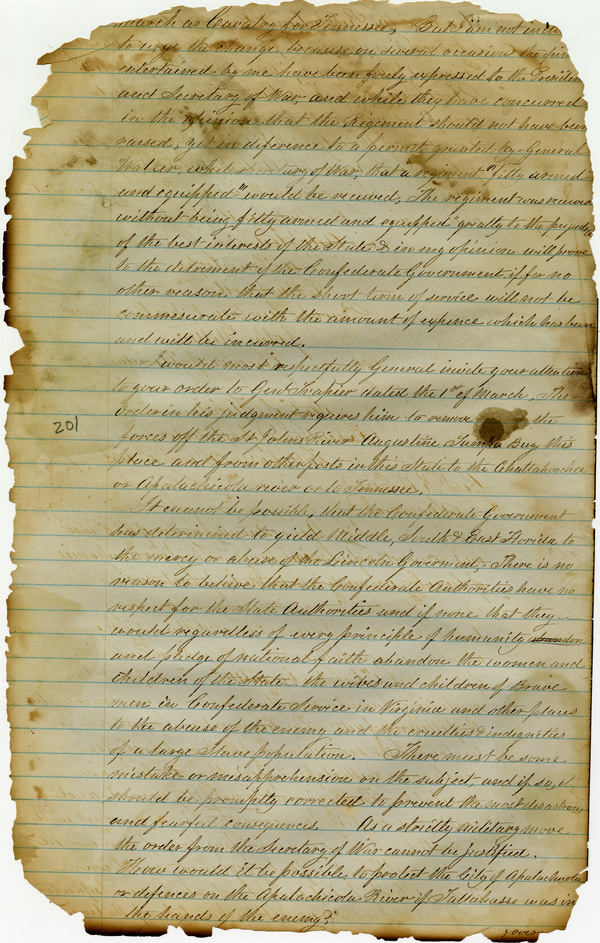 march as Cavalry for Tennessee, But I am not
to urge the change because on several occasions the
entertained by me have been freely expressed to the Presiden
and Secretary of War, and while they have concurred
in the opinion that the Regiment should not have been
raised, yet in deference to a permit granted by General
Walker, while of War, that a regiment "fitly armed
and equipped" would be received, The regiment was received
without being fitly armed and equipped" greatly to the prejudice
of the best interests of the State & in my opinion will prove
to the detriment of the Confederate Government if for no
other reason that the short term of service will not be
commensurate with the amount of expence which has been
and will be incurred.
I would most respectfully General invite your attention
to your order to Genl Trapier dated the 1st of March, The
Order in his judgment requires him to remove the
forces off the St Johns River Augustine Tampa Bay this
place and from other posts in this State to the Chattahoochee
or Apalachicola river or to Tennessee.
201
It cannot be possible, that the Confederate Government
has determined to yield Middle, South & East Florida to
the mercy or abuse of the Lincoln Goverment. There is no
reason to believe that the Confederate Authorities have no
respect for the State Authorities and if none that they
would regardless of every principle of humanity
and pledge of national faith abandon the women and
children of the State the wives and children of Brave
men in Confederate Service in Virginia and other places
to the abuse of the enemy and the cruelties & indignities
of a large Slave population. There must be some
mistake or misapprehension on the subject, and if so, it
should be promptly corrected to prevent the most disastrous
and fearful consequences. As a strictly military move
the order from the Secretary of War cannot be justified.
How would it be possible to protect the City of Apalachicola
or defences on the Apalachicola River if Tallahasse was in
the hands of the enemy?
over